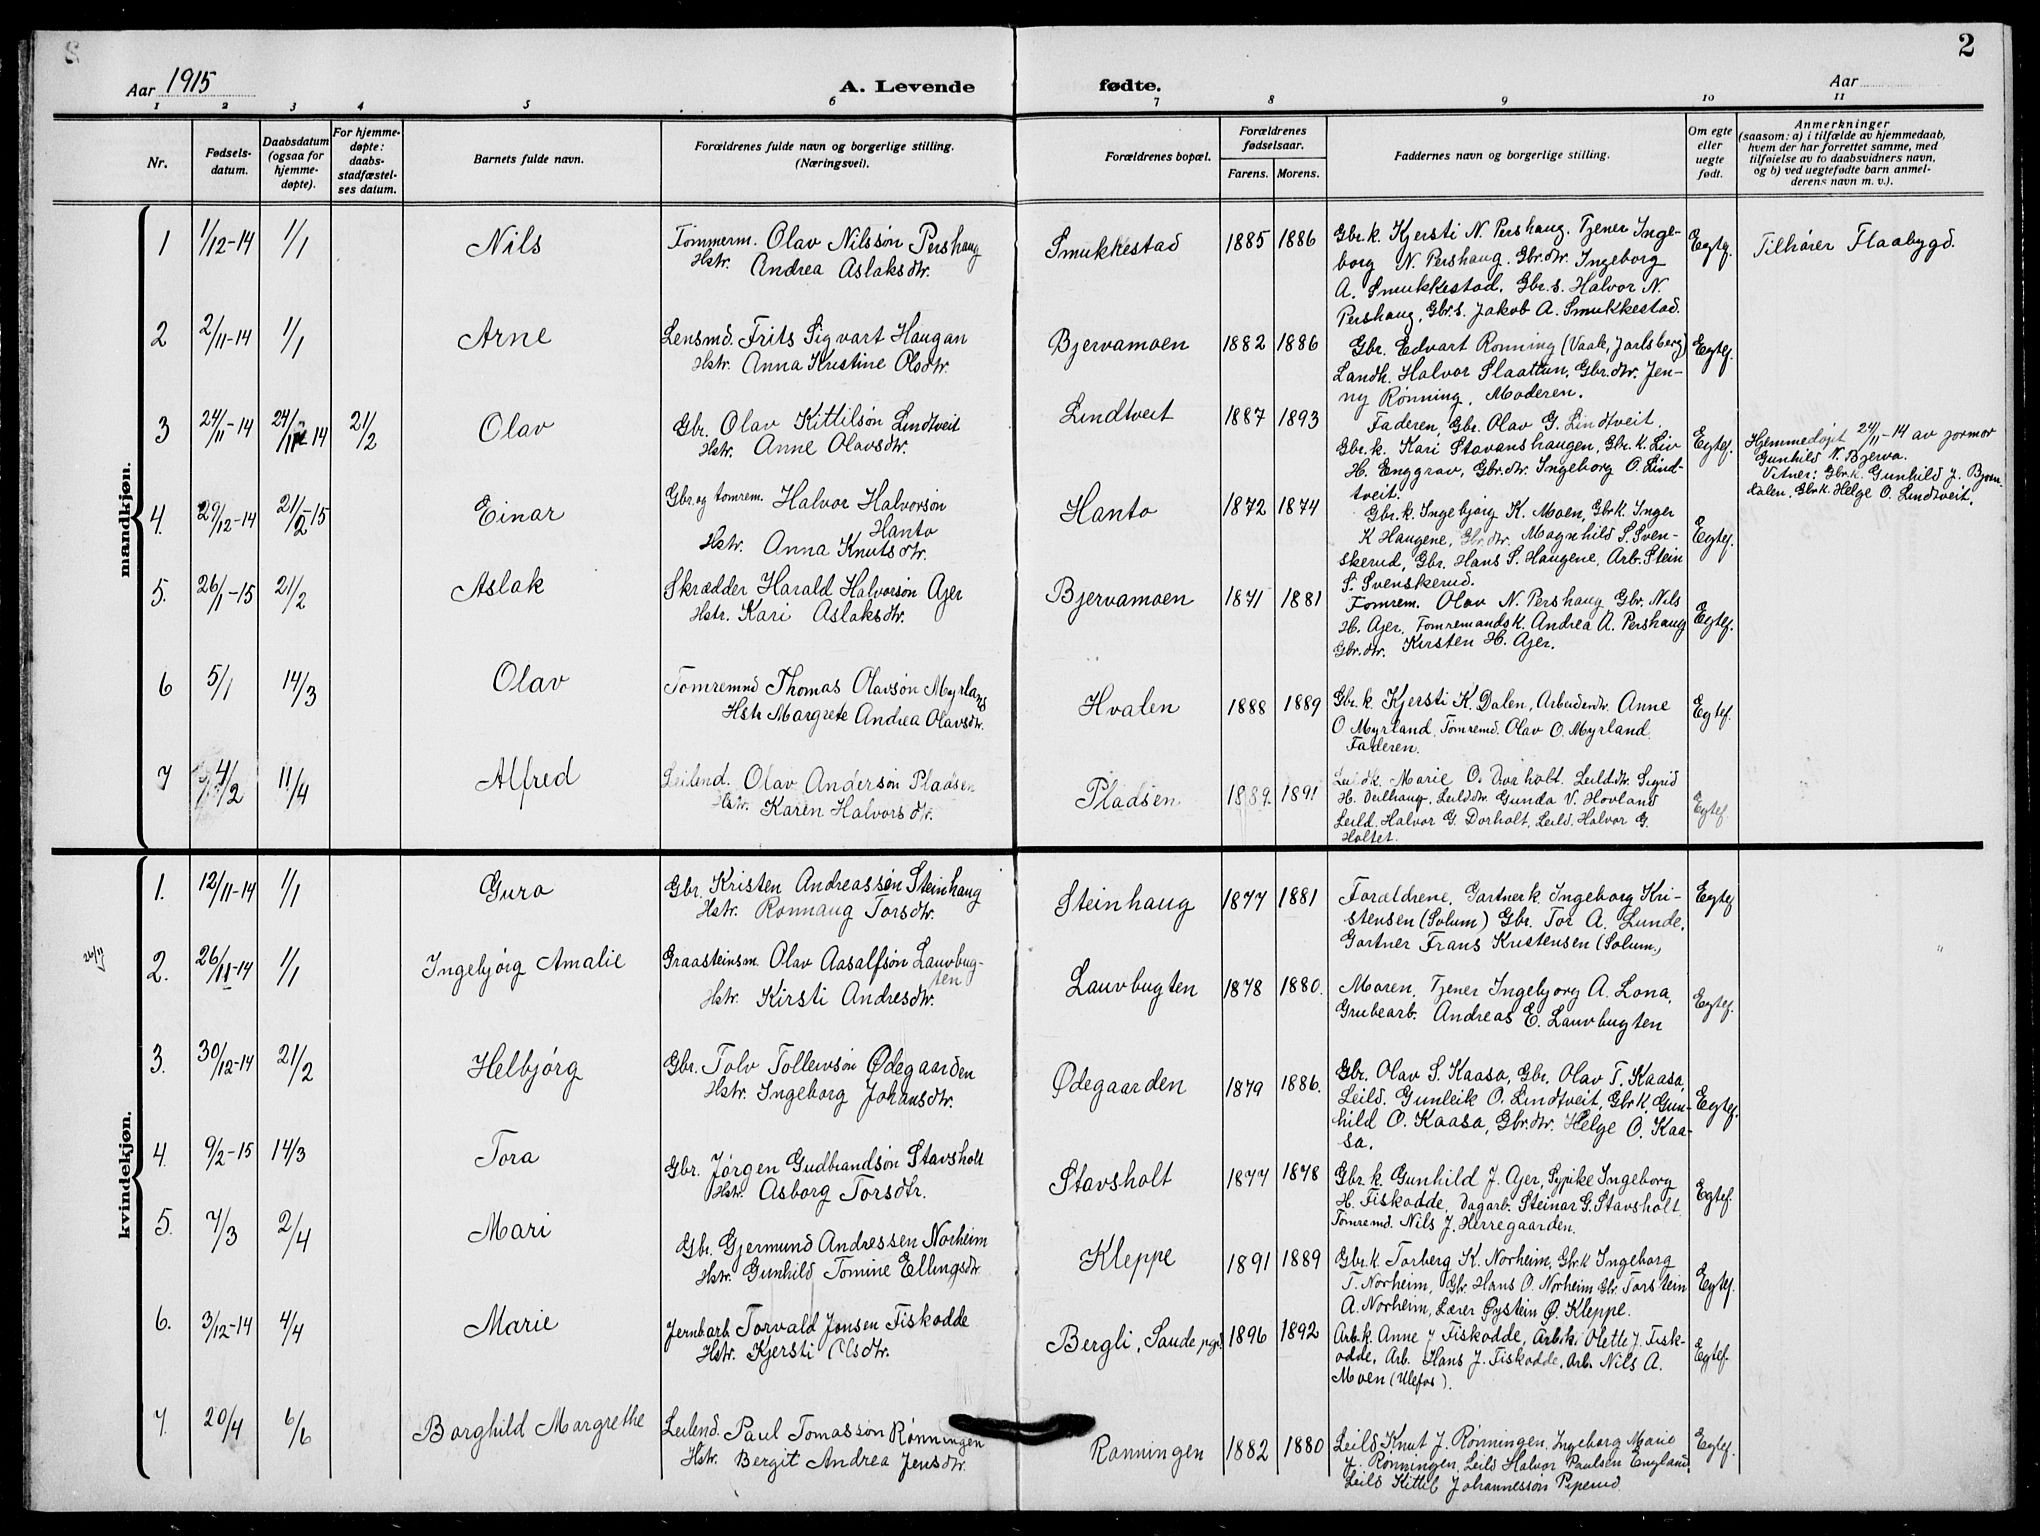 2
Aar 1915
A. Levende fødte.
Aar
1 2 3 4 5 6 7 8 9 10 11
Nr.
Fødsels-
datum.
Daabsdatum
(ogsaa for
hjemme-
døpte).
For hjemme-
døpte:
daabs-
stadfæstel-
ses datum.
Barnets fulde navn.
Forældrenes fulde navn og borgerlige stilling.
(Næringsvei).
Forældrenes bopæl.
Forældrenes
fødselsaar.
Farens. Morens.
Faddernes navn og borgerlige stilling.
Om egte
eller
uegte
født.
Anmerkninger
(saasom: a) i tilfælde av hjemmedaab,
hvem der har forrettet samme, med
tilføielse av to daabsvidners navn,
og b) ved uegtefødte barn anmel-
derens navn m. v.).
mandkjøn.
1 1/12-14 1/1 Nils
Tømmerm. Olav Nilssøn Pershaug
Hstr. Andrea Aslaksdtr.
Smukkestad 1885 1886
Gbr.k. Kjersti N. Pershaug. Tjener Inge-
borg N. Pershaug. Gbr.dtr. Ingeborg
A. Smukkestad, Gbr.s. Halvor N.
Pershaug, Gbr.s. Jakob A. Smukkestad.
Egtef. Tilhører Flaabygd.
2 2/11-14 1/1 Arne
Lensmd. Frits Sigvart Haugan
Hstr. Anna Kristine Olsdtr.
Bjervamoen 1882 1886
Gbr. Edvart Rønning (Vaale, Jarlsberg)
Landh. Halvor Slaattun, Gbr.dtr. Jen-
ny Rønning, Moderen.
Egtef.
3 24/11-14 24/11-14 21/2 Olav
Gbr. Olav Kittilsøn Lindtveit
Hstr. Anne Olavsdtr.
Lindtveit 1887 1893
Faderen, Gbr. Olav G. Lindtveit.
Gbr.k. Kari Stavanshaugen, Gbr.k. Liv
H. Enggrav, Gbr.dtr. Ingeborg O. Lind-
tveit.
Egtef.
Hjemmedøpt 24/11-14 av jormor
Gunhild N. Bjerva.
Vitner: Gbr.k. Gunhild J. Bjørn-
dalen, Gbr.k. Helge O. Lindtveit.
4. 29/12-14 21/2-15 Einar
Gbr. og tømrem. Halvor Halvorsøn
Hanto
Hstr. Anna Knutsdtr.
Hanto 1872 1874
Gbr.k. Ingebjørg K. Moen, Gbr.k. Inger
K Haugene, Gbr.dtr. Magnhild S. Sven-
skerud, Gbr. Hans S. Haugene, Arb. Stein
S. Svenskerud.
Egtef.
5. 26/1-15 21/2 Aslak
Skrædder Harald Halvorsøn Ajer
Hstr. Kari Aslaksdtr.
Bjervamoen 1871 1881
Tømrem. Olav N. Pershaug Gbr. Nils
H. Ajer, Tømremandsk. Andrea A. Pershaug
Gbr.dtr. Kirsten H. Ajer.
Egtef.
6 5/1 14/3 Olav
Tømremnd Thomas Olavsøn Myrland
Hstr Margrete Andrea Olavsdtr.
Hvalen 1888 1889
Gbr.k. Kjersti K. Dalen, Arbeiderdtr. Anne
O Myrland, Tømremd. Olav O. Myrland.
Faderen.
Egtef.
7 4/2 11/4 Alfred
Leilend. Olav Andersøn Pladsen
Hstr. Karen Halvorsdtr.
Pladsen 1889. 1891
Leildk. Marie O. Dorholt. Leild.dtr. Sigrid
H. Deilhaug, Leilddtr. Gunda V. Hovland
Leild. Halvor G. Dorholt, Leild. Halvor G.
Holtet.
Egtef.
kvindekjøn.
1. 12/11-14 1/1 Guro
Gbr. Kristen Andreassen Steinhaug
Hstr. Rønnaug Torsdtr.
Steinhaug 1877 1881
Forældrene, Gartnerk. Ingeborg Kri-
stensen (Solum) Gbr. Tor A. Lunde,
Gartner Frans Kristensen (Solum.)
Egtef
26/11
2. 26/11-14 1/1 Ingebjørg Amalie
Graasteinsm. Olav Aasalfsøn Lauvbug-
ten
Hstr. Kirsti Andresdtr.
Lauvbugten 1878 1880.
Moren, Tjener Ingebjorg A. Lona,
Grubearb. Andreas E. Lauvbugten
Egtef.
3. 30/12-14 21/2 Helbjørg
Gbr. Tolv Tollevsøn Ødegaarden
Hstr. Ingeborg Johansdtr.
Ødegaarden 1879 1886.
Gbr. Olav S. Kaasa, Gbr. Olav T. Kaasa,
Leild. Gunleik O. Lindtveit, Gbr.k. Gun-
hild O. Kaasa, Gbr.dtr. Helge O. Kaa-
sa.
Egtef.
4. 9/2-15 14/3 Tora
Gbr. Jørgen Gudbrandsøn Stavsholt
Hstr. Asborg Torsdtr.
Stavsholt 1877 1878
Gbr.k. Gunhild J. Ajer, Sypike Ingeborg
H. Fiskodde, Dagarb. Steinar G. Stavsholt
Tømremd. Nils J. Herregaarden.
Egtef.
5. 7/3 2/4 Mari
Gbr. Gjermund Andressen Norheim
Hstr. Gunhild Tomine Ellingsdtr
Kleppe 1891 1889
Gbr.k. Torberg K. Norheim, Gbr.k Ingeborg
T. Norheim, Gbr. Hans O. Norheim Gbr. Torstein
A. Norheim, Lærer Øystein Ø. Kleppe.
Egtef.
6. 3/12-14 4/4 Marie
Jernbarb. Torvald Jonsen Fiskodde
Hstr. Kjersti Olsdtr.
Bergli, Saude pgd. 1896 1892
Arb.k. Anne J Fiskodde, Arb.k. Olette J. Fisk-
odde, Arb. Hans J. Fiskodde, Arb. Nils A.
Moen (Ulefos).
Egtef.
7. 20/4 6/6 Borghild Margrethe
Leilend. Paul Tomassøn Rønningen
Hstr. Bergit Andrea Jensdtr.
Rønningen 1882 1880
Leild Knut J. Rønningen, Ingeborg Marie
J. Rønningen, Leild Halvor Paulsen England,
Leild Kittil Johannessøn Piperud.
Egtef.